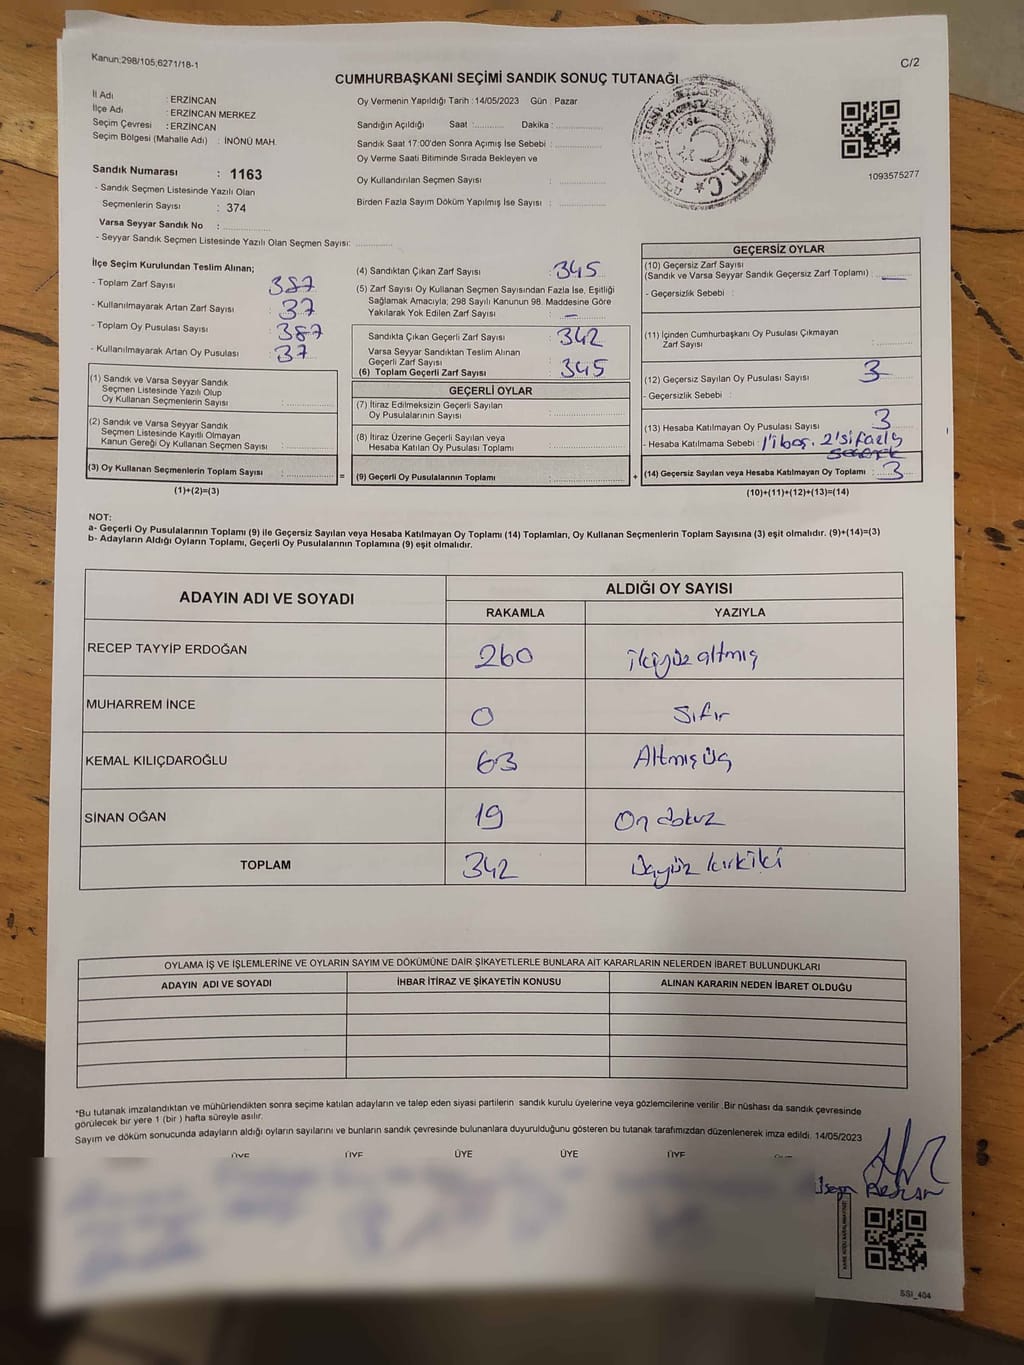 Kanun;298/105;6271/18-1
C/2
CUMHURBAŞKANI SEÇİMİ SANDIK SONUÇ TUTANAĞI
İl Adı : ERZİNCAN
İlçe Adı : ERZİNCAN MERKEZ
Seçim Çevresi : ERZİNCAN
Seçim Bölgesi (Mahalle Adı) : İNÖNÜ MAH.
Sandık Numarası : 1163
- Sandık Seçmen Listesinde Yazılı Olan
Seçmenlerin Sayısı : 374
Varsa Seyyar Sandık No :
- Seyyar Sandık Seçmen Listesinde Yazılı Olan Seçmen Sayısı:
Oy Vermenin Yapıldığı Tarih : 14/05/2023 Gün : Pazar
Sandığın Açıldığı Saat : Dakika :
Sandık Saat 17:00'den Sonra Açımış İse Sebebi :
Oy Verme Saati Bitiminde Sırada Bekleyen ve
Oy Kullandırılan Seçmen Sayısı :
Birden Fazla Sayım Döküm Yapılmış İse Sayısı :
T.C.
1093575277
İlçe Seçim Kurulundan Teslim Alınan;
- Toplam Zarf Sayısı : 387
- Kullanılmayarak Artan Zarf Sayısı : 37
- Toplam Oy Pusulası Sayısı : 387
- Kullanılmayarak Artan Oy Pusulası : 37
(1) Sandık ve Varsa Seyyar Sandık
Seçmen Listesinde Yazılı Olup
Oy Kullanan Seçmenlerin Sayısı :
(2) Sandık ve Varsa Seyyar Sandık
Seçmen Listesinde Kayıtlı Olmayan
Kanun Gereği Oy Kullanan Seçmen Sayısı :
(3) Oy Kullanan Seçmenlerin Toplam Sayısı :
(1)+(2)=(3)
(4) Sandıktan Çıkan Zarf Sayısı : 345
(5) Zarf Sayısı Oy Kullanan Seçmen Sayısından Fazla İse, Eşitliği
Sağlamak Amacıyla; 298 Sayılı Kanunun 98. Maddesine Göre
Yakılarak Yok Edilen Zarf Sayısı : –
Sandıkta Çıkan Geçerli Zarf Sayısı : 342
Varsa Seyyar Sandıktan Teslim Alınan
Geçerli Zarf Sayısı
(6) Toplam Geçerli Zarf Sayısı : 345
GEÇERLİ OYLAR
(7) İtiraz Edilmeksizin Geçerli Sayılan
Oy Pusulalarının Sayısı :
(8) İtiraz Üzerine Geçerli Sayılan veya
Hesaba Katılan Oy Pusulası Toplamı :
= (9) Geçerli Oy Pusulalarının Toplamı : +
GEÇERSİZ OYLAR
(10) Geçersiz Zarf Sayısı
(Sandık ve Varsa Seyyar Sandık Geçersiz Zarf Toplamı) : –
- Geçersizlik Sebebi :
(11) İçinden Cumhurbaşkanı Oy Pusulası Çıkmayan
Zarf Sayısı :
(12) Geçersiz Sayılan Oy Pusulası Sayısı : 3
- Geçersizlik Sebebi :
(13) Hesaba Katılmayan Oy Pusulası Sayısı : 3
- Hesaba Katılmama Sebebi : 1'i boş. 2'si fazla
(14) Geçersiz Sayılan veya Hesaba Katılmayan Oy Toplamı : 3
(10)+(11)+(12)+(13)=(14)
NOT:
a- Geçerli Oy Pusulalarının Toplamı (9) ile Geçersiz Sayılan veya Hesaba Katılmayan Oy Toplamı (14) Toplamları, Oy Kullanan Seçmenlerin Toplam Sayısına (3) eşit olmalıdır. (9)+(14)=(3)
b- Adayların Aldığı Oyların Toplamı, Geçerli Oy Pusulalarının Toplamına (9) eşit olmalıdır.
ADAYIN ADI VE SOYADI ALDIĞI OY SAYISI
RAKAMLA YAZIYLA
RECEP TAYYİP ERDOĞAN 260 ikiyüz altmış
MUHARREM İNCE 0 Sıfır
KEMAL KILIÇDAROĞLU 63 Altmış üç
SİNAN OĞAN 19 On dokuz
TOPLAM 342 Üçyüz kırkiki
OYLAMA İŞ VE İŞLEMLERİNE VE OYLARIN SAYIM VE DÖKÜMÜNE DAİR ŞİKAYETLERLE BUNLARA AİT KARARLARIN NELERDEN İBARET BULUNDUKLARI
ADAYIN ADI VE SOYADI İHBAR İTİRAZ VE ŞİKAYETİN KONUSU ALINAN KARARIN NEDEN İBARET OLDUĞU
*Bu tutanak imzalandıktan ve mühürlendikten sonra seçime katılan adayların ve talep eden siyasi partilerin sandık kurulu üyelerine veya gözlemcilerine verilir .Bir nüshası da sandık çevresinde
görülecek bir yere 1 (bir ) hafta süreyle asılır.
Sayım ve döküm sonucunda adayların aldığı oyların sayılarını ve bunların sandık çevresinde bulunanlara duyurulduğunu gösteren bu tutanak tarafımızdan düzenlenerek imza edildi. 14/05/2023
ÜYE ÜYE ÜYE ÜYE ÜYE
SSI_404